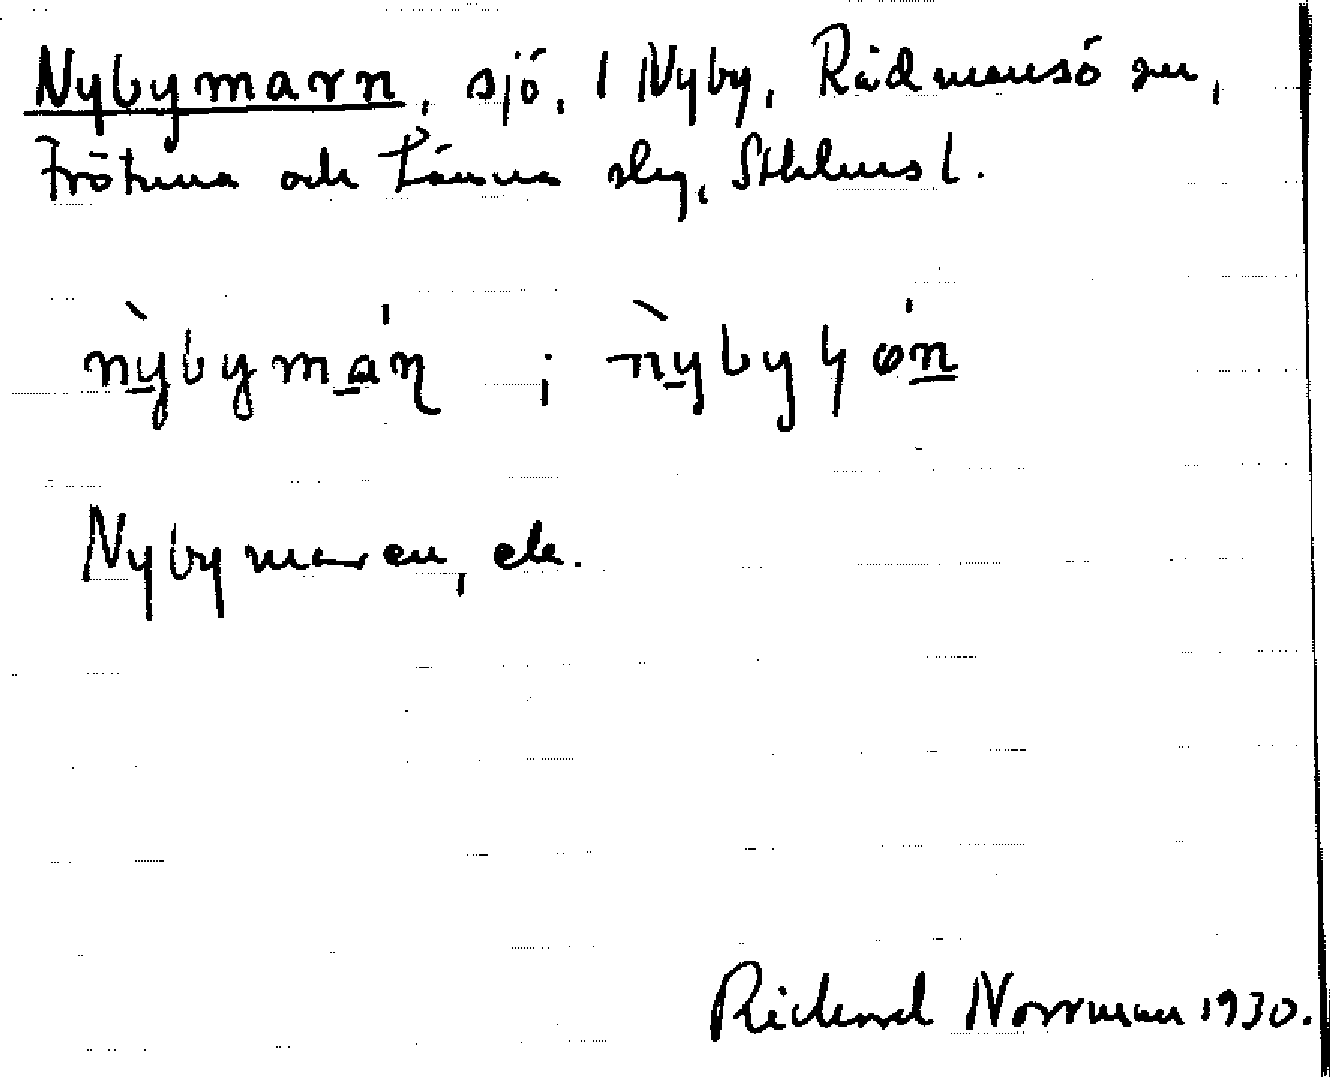 Nybymarn, sjö, i Nyby, Rådmansö sn,
Frötuna och Länna slg, Sthlms l.
nỳbymán ; nỳbyɧǿn
Nybymaren, ek.
Rickard Norrman 1930.